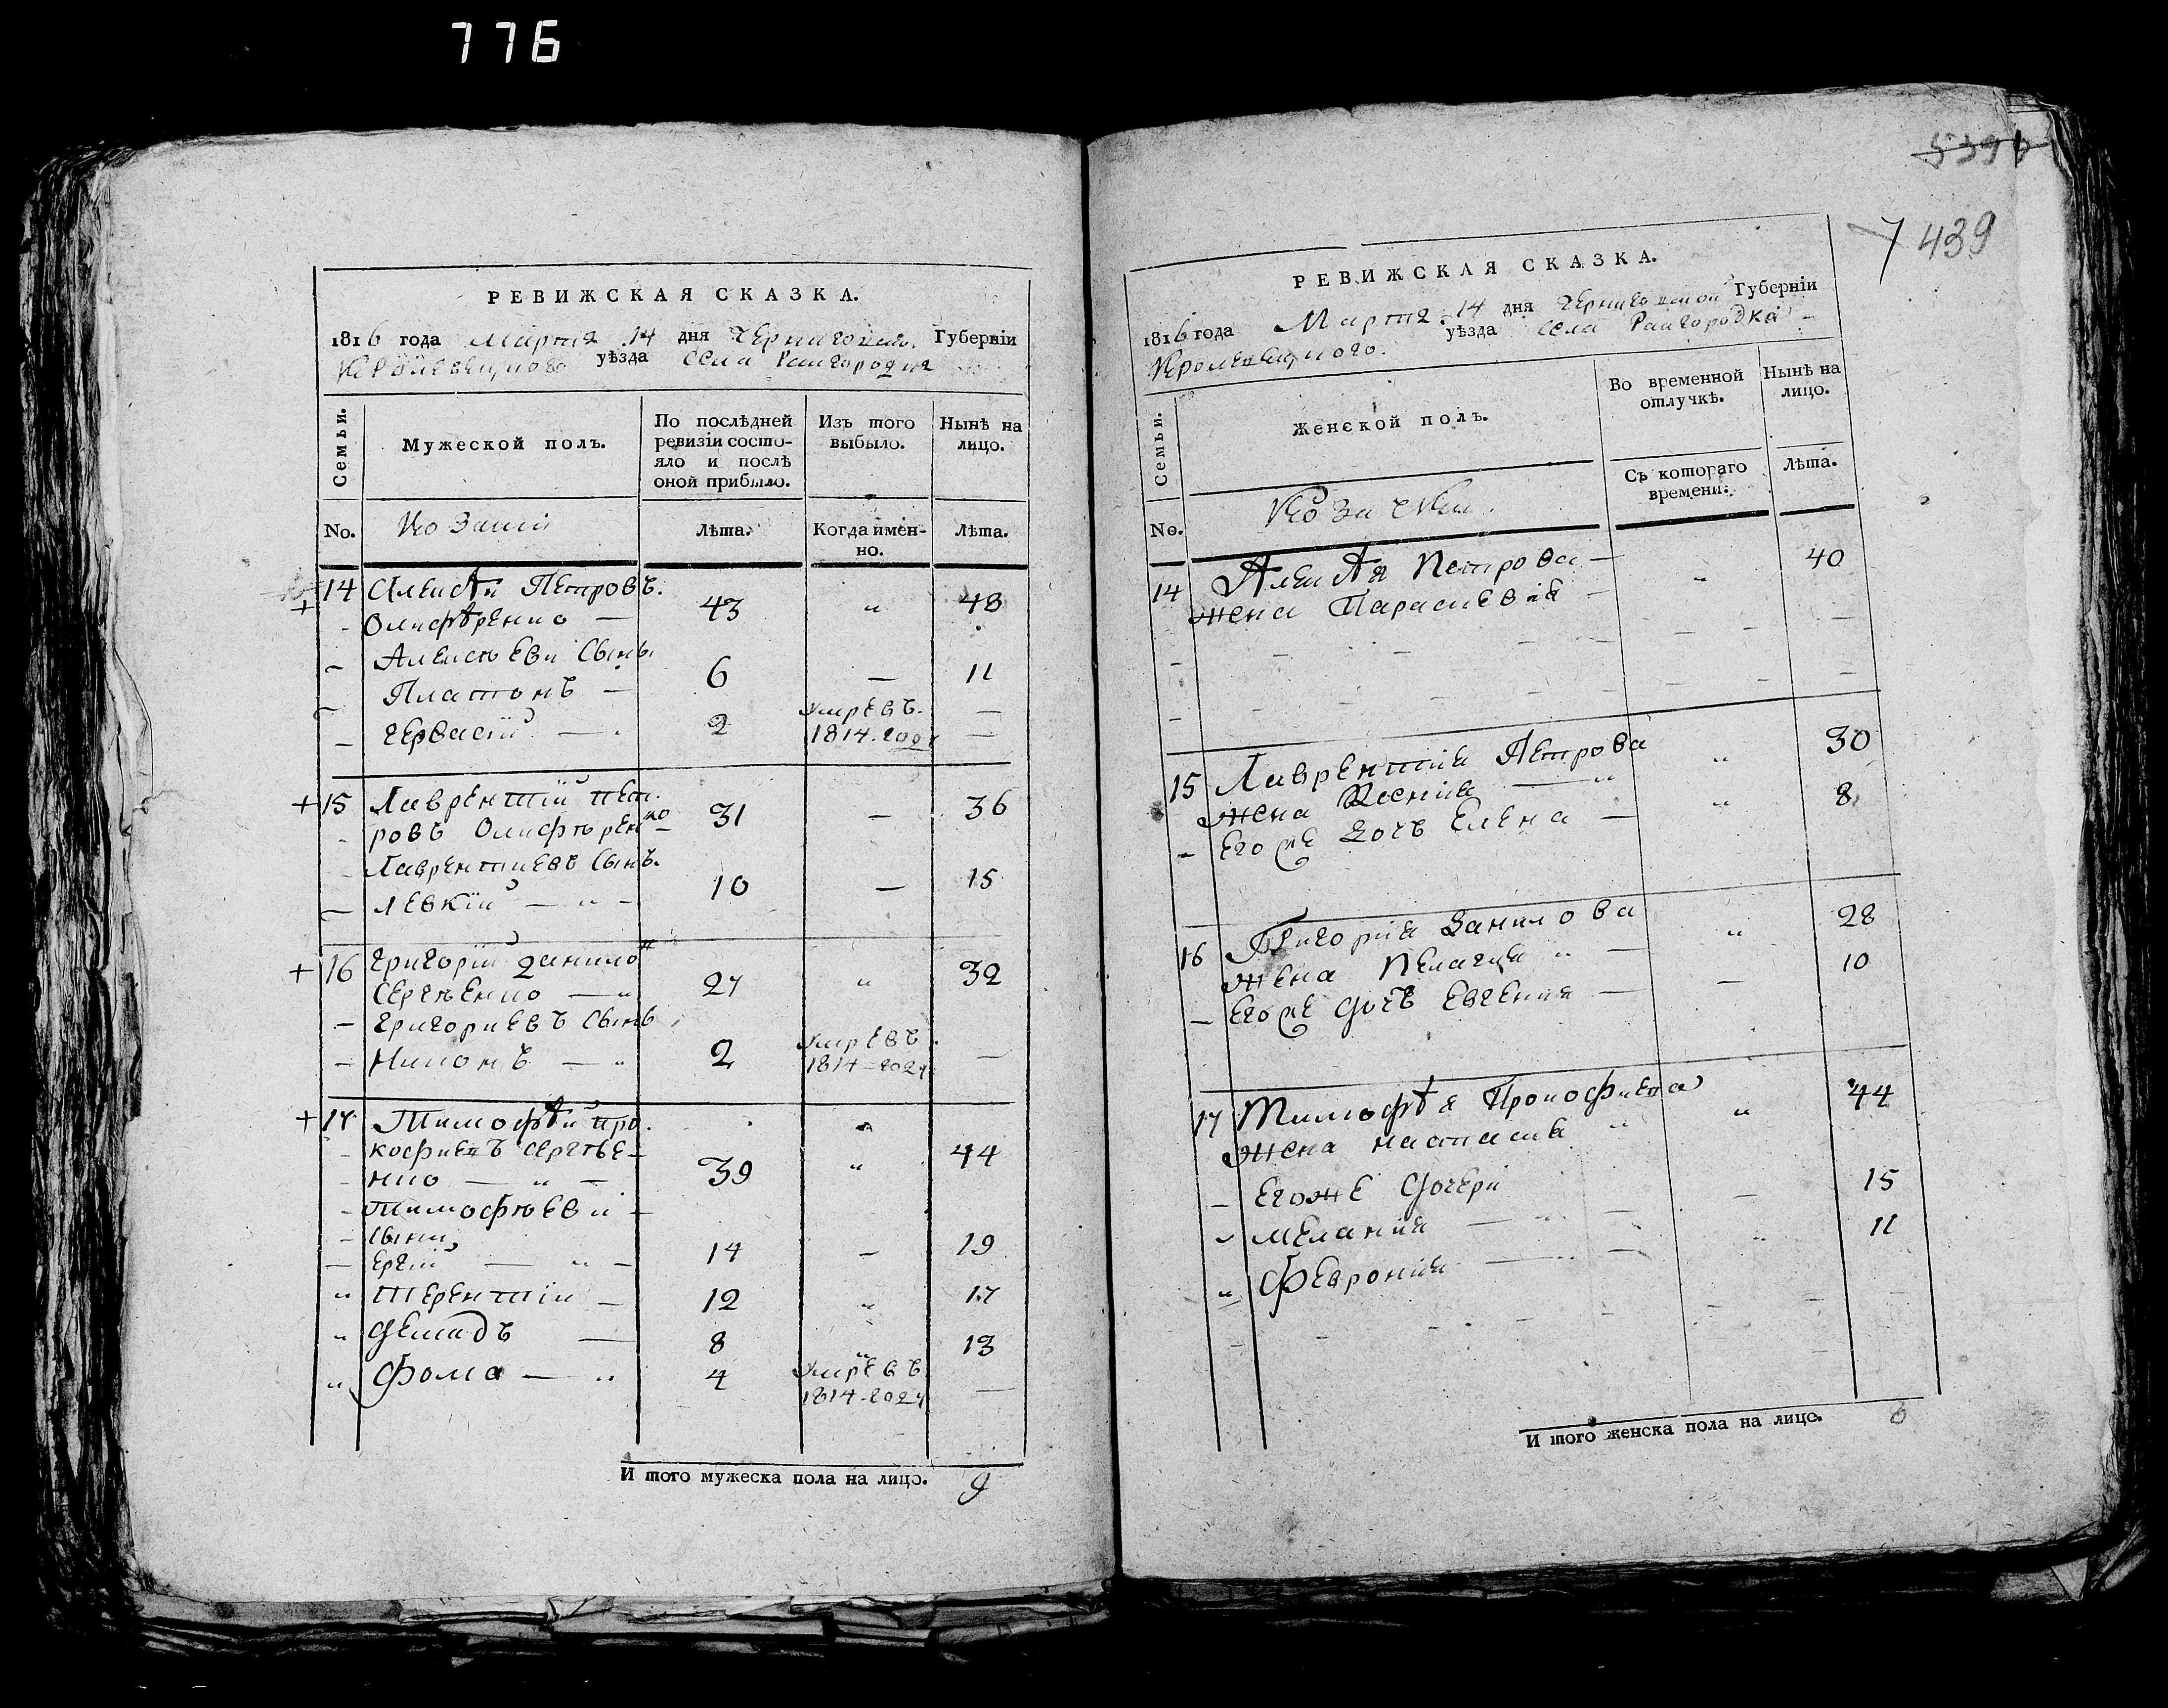 776
РЕВИЖСКАЯ СКАЗКА.
1816 года Марта 14 дня Черниговской Губернїи
Кролевецкого уѣзда села Райгородка
Семьи.
Мужеской полъ.
По послѣдней
ревизїи состо-
яло и послѣ
оной прибыло.
Изъ того
выбыло.
Нынѣ на
лицо.
No. Козаки Лѣта. Когда имен-
но. Лѣта.
14 Алексѣй Петровъ.
Олифѣренко — 43 „ 48
Алексѣеви Сыны
Платонъ — 6 — 11
Гервасїй — 2 Умревъ. —
1814. году —
+ 15 Лаврентїй Пет.
ровъ Олифѣренко 31 — 36
Лаврентиевъ Сынъ.
Левкїй — „ — 10 — 15
+ 16 Григорїй Данилов
Сергѣенко — „ 27 „ 32
Григориевъ Сынъ
Никонъ — „ 2 Умревъ. —
1814 году
+ 17 Тимофѣй Про.
кофиевъ Сергѣе-
нко — „ — 39 „ 44
Тимофѣеви
Сыни
Ергїй — „ — 14 — 19
Терентїй — 12 „ 17
Демидъ — 8 „ 13
Фома — „ 4 Умревъ —
1814 году
И того мужеска пола на лицо. 9
539
439
РЕВИЖСКАЯ СКАЗКА.
1816 года Марта 14 дня Черниговской Губернїи
Кролевецкого. уѣзда села Райгородка
Семьи.
Женской полъ.
Во временной
отлучкѣ.
Нынѣ на
лицо.
Съ котораго
времени.
Лѣта.
No. Козачки
14 Алексѣя Петрова — „ 40
жена Параскевїя —
15 Лаврентия Петрова „ 30
жена Ксенїя — „
— Его же дочъ Елена — „ 8
16 Григория Данилова „ 28
жена Пелагия „ —
— Его же дочъ Евгения — — 10
17 Тимофѣя Прокофиева „ 44
жена Настасия „
— Егоже дочери
„ Меланїя — „ — — 15
„ Феврония — „ — „ 11
И того женска пола на лицо. 6